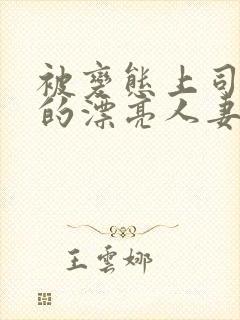 被变态上司
的漂亮人妻
王云娜